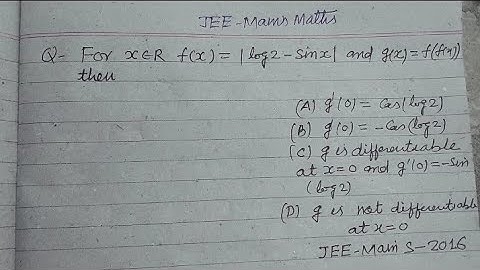 JEE-Mains Maths
Q- For x∈R f(x) = |log2-Sinx| and g(x)=f(f(x))
then
(A) g'(0) = Cos(log2)
(B) g'(0) = -Cos(log2)
(C) g is differentiable
at x=0 and g'(0)=-Sin
(log2)
(D) g is not differentiable
at x=0
JEE-Main S-2016